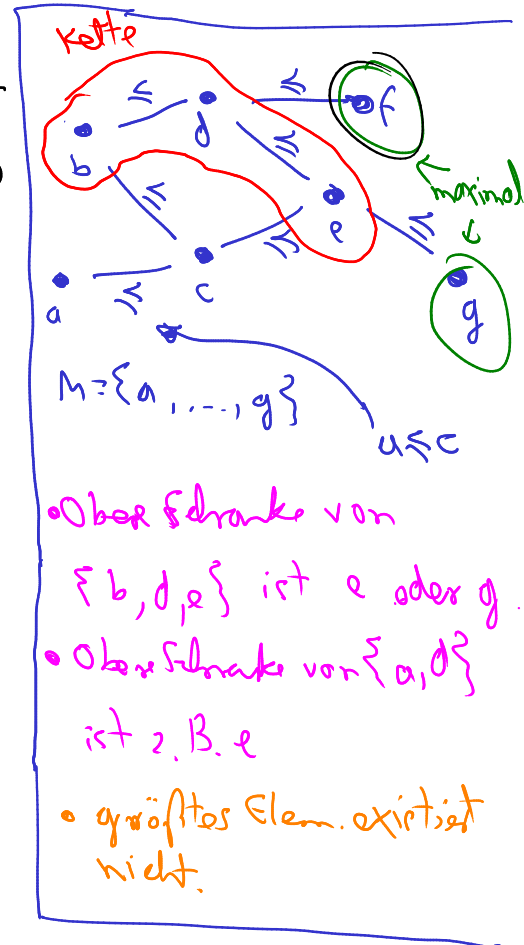 Kette
≤
≤
f
b
d
≤
maximal
≤
e
≤
≤
a
≤
c
g
M = {a, ..., g}
a ≤ c
• Obere Schranke von
{b, d, e} ist e oder g.
• Obere Schranke von {a, d}
ist z.B. e
• größtes Elem. existiert
nicht.